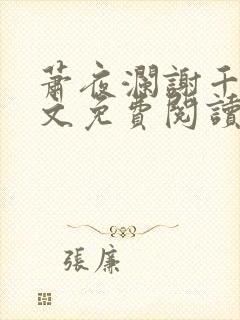 蕭夜瀾謝千
文免費閱讀
張廉